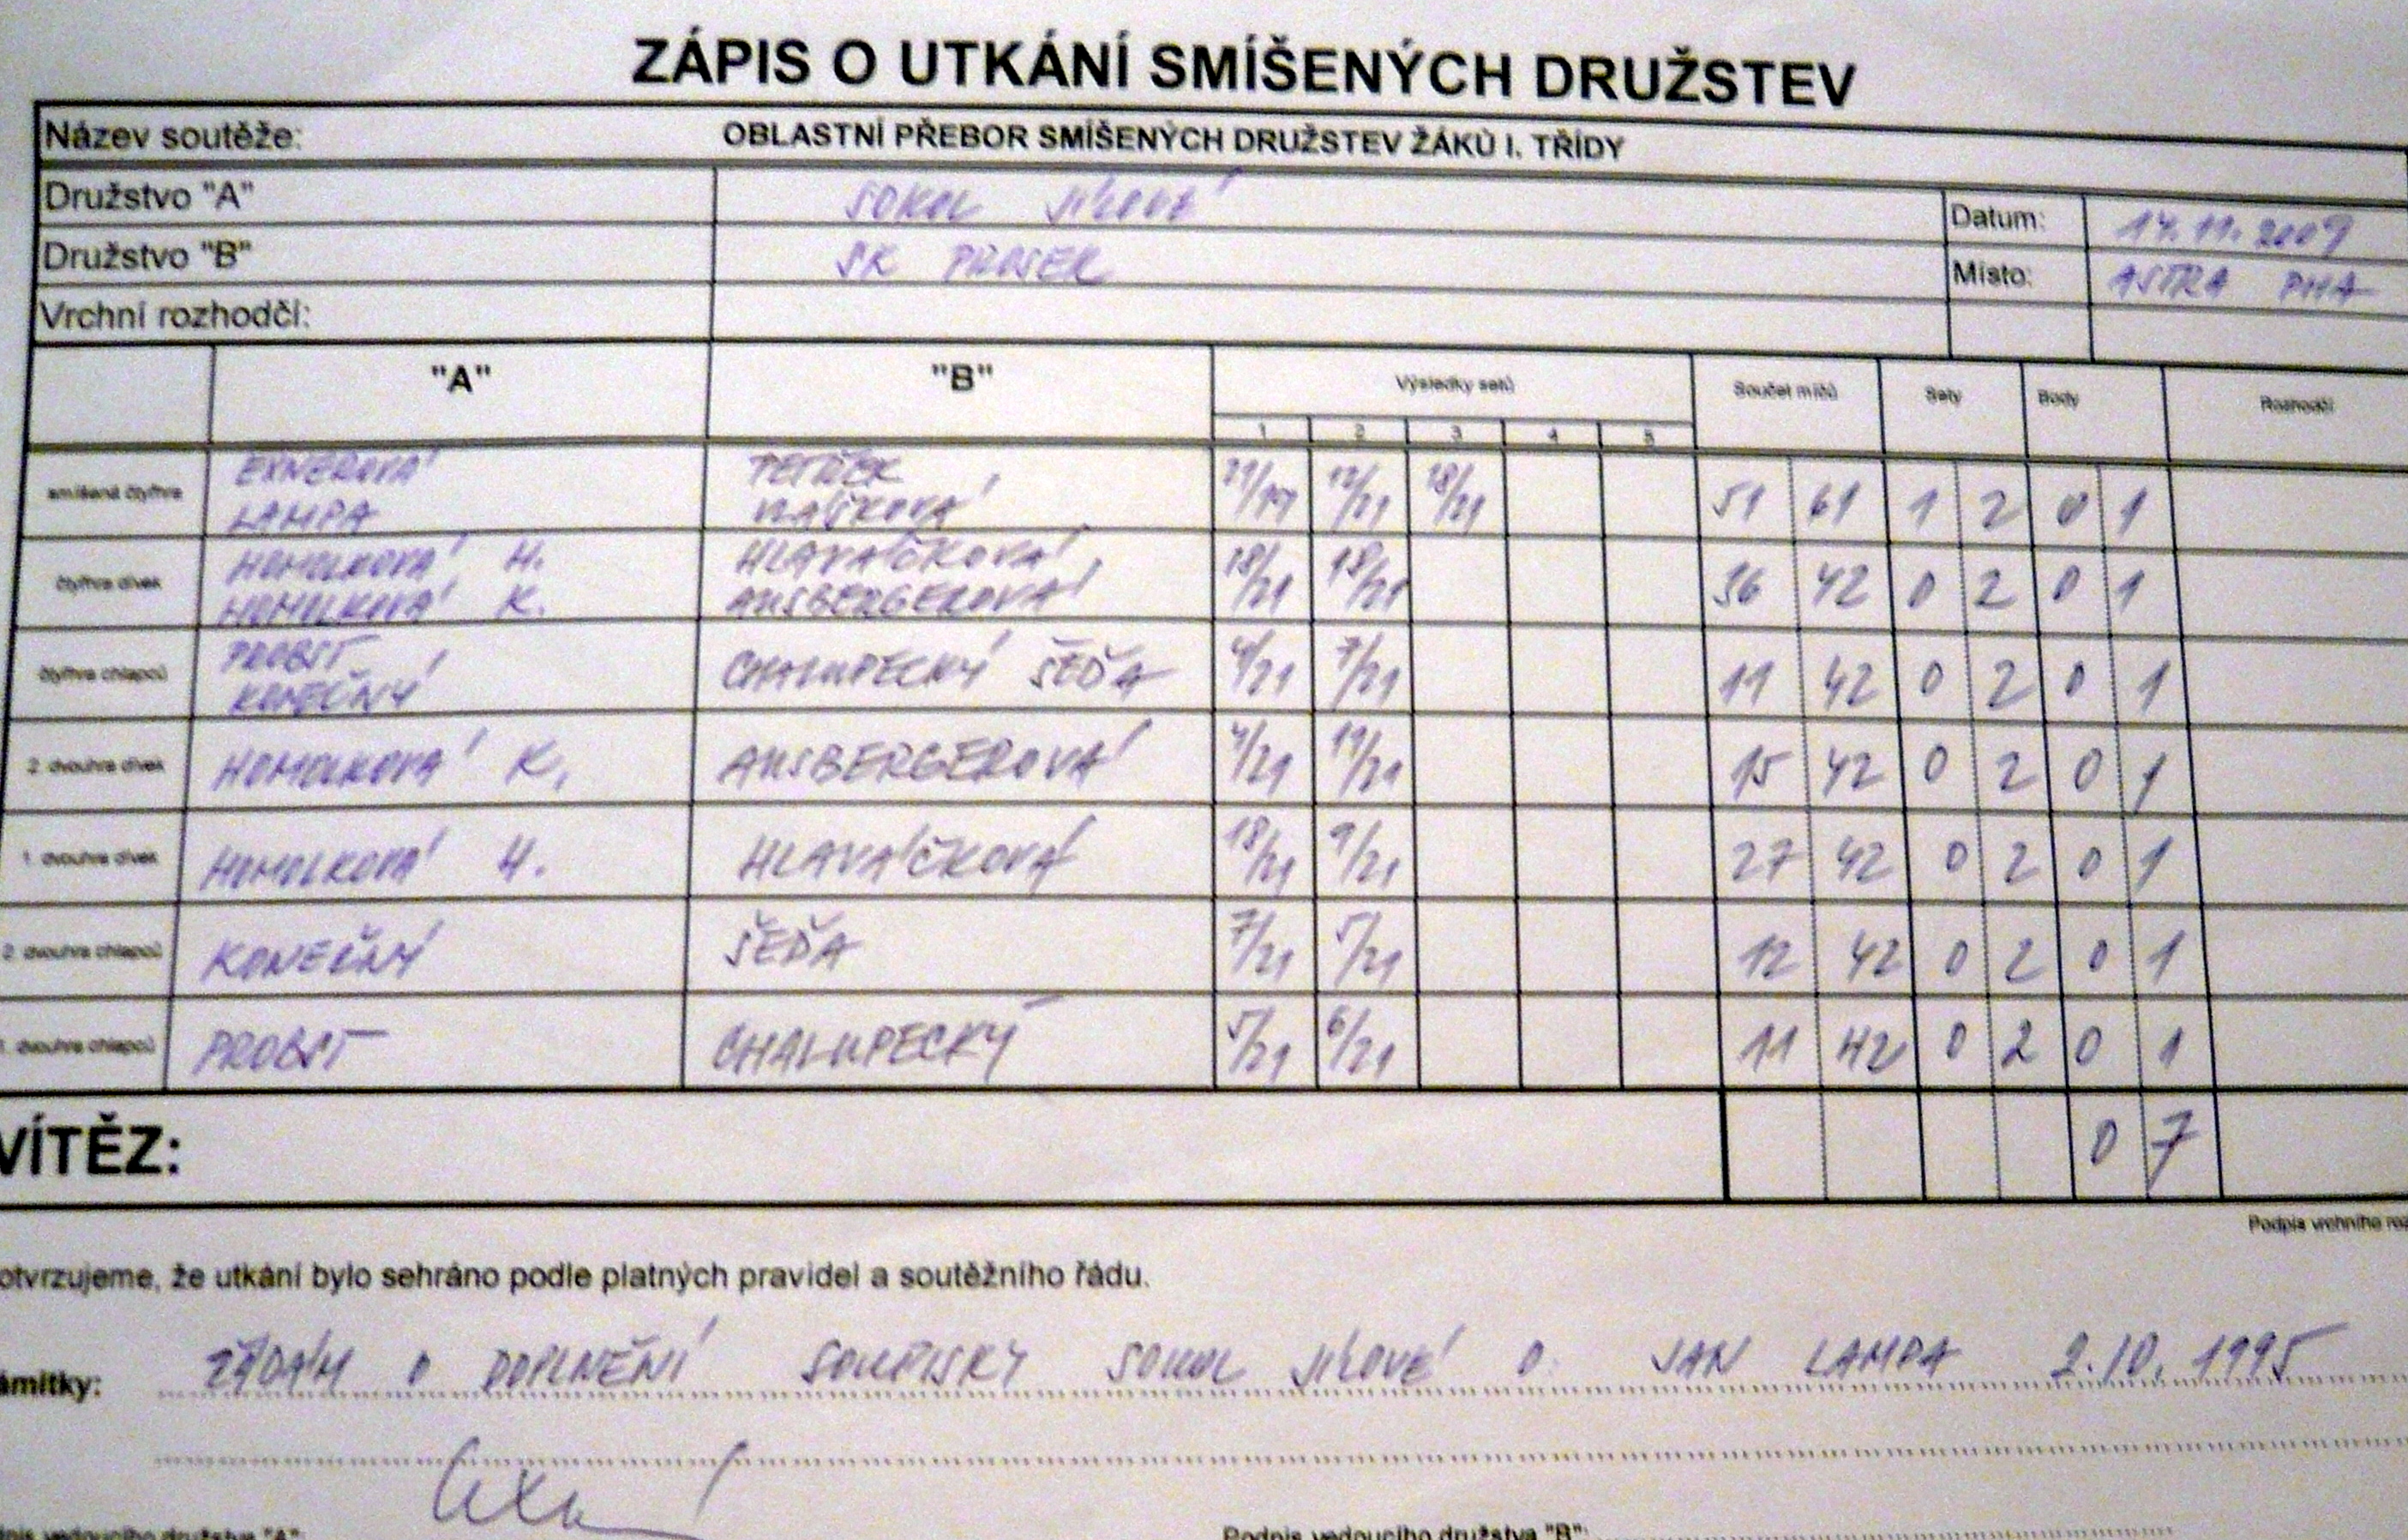 ZÁPIS O UTKÁNÍ SMÍŠENÝCH DRUŽSTEV
Název soutěže: OBLASTNÍ PŘEBOR SMÍŠENÝCH DRUŽSTEV ŽÁKŮ I. TŘÍDY
Družstvo "A" SOKOL JÍLOVÉ
Datum: 14.11.2009
Družstvo "B" SK PROSEK
Místo: ASTRA PHA
Vrchní rozhodčí:
"A" "B" Výsledky setů Součet míčů Sety Body Rozhodčí
1 2 3 4 5
smíšená čtyřhra EXNEROVÁ PETŘÍČEK 21/19 12/21 18/21 51 61 1 2 0 1
LAMPA
čtyřhra dívek HOMOLKOVÁ H. HLAVÁČKOVÁ 18/21 18/21 36 42 0 2 0 1
HOMOLKOVÁ K. ANSBERGEROVÁ
čtyřhra chlapců PROBST CHALUPECKÝ ŠEĎA 4/21 7/21 11 42 0 2 0 1
KONEČNÝ
2. dvouhra dívek HOMOLKOVÁ K. ANSBERGEROVÁ 4/21 11/21 15 42 0 2 0 1
1. dvouhra dívek HOMOLKOVÁ H. HLAVÁČKOVÁ 18/21 9/21 27 42 0 2 0 1
2. dvouhra chlapců KONEČNÝ ŠEĎA 7/21 5/21 12 42 0 2 0 1
1. dvouhra chlapců PROBST CHALUPECKÝ 5/21 6/21 11 42 0 2 0 1
VÍTĚZ: 0 7
Podpis vrchního roz
otvrzujeme, že utkání bylo sehráno podle platných pravidel a soutěžního řádu.
ámitky: ŽÁDÁM O DOPLNĚNÍ SOUPISKY SOKOL JÍLOVÉ O JAN LAMPA 2.10.1995
dpis vedoucího družstva "A": Podpis vedoucího družstva "B":